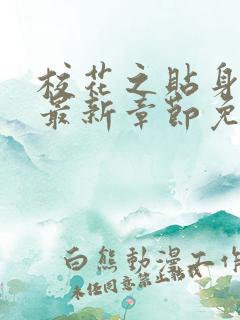 校花之贴身
最新章节免
白熊動漫工作
未经同意禁止转载